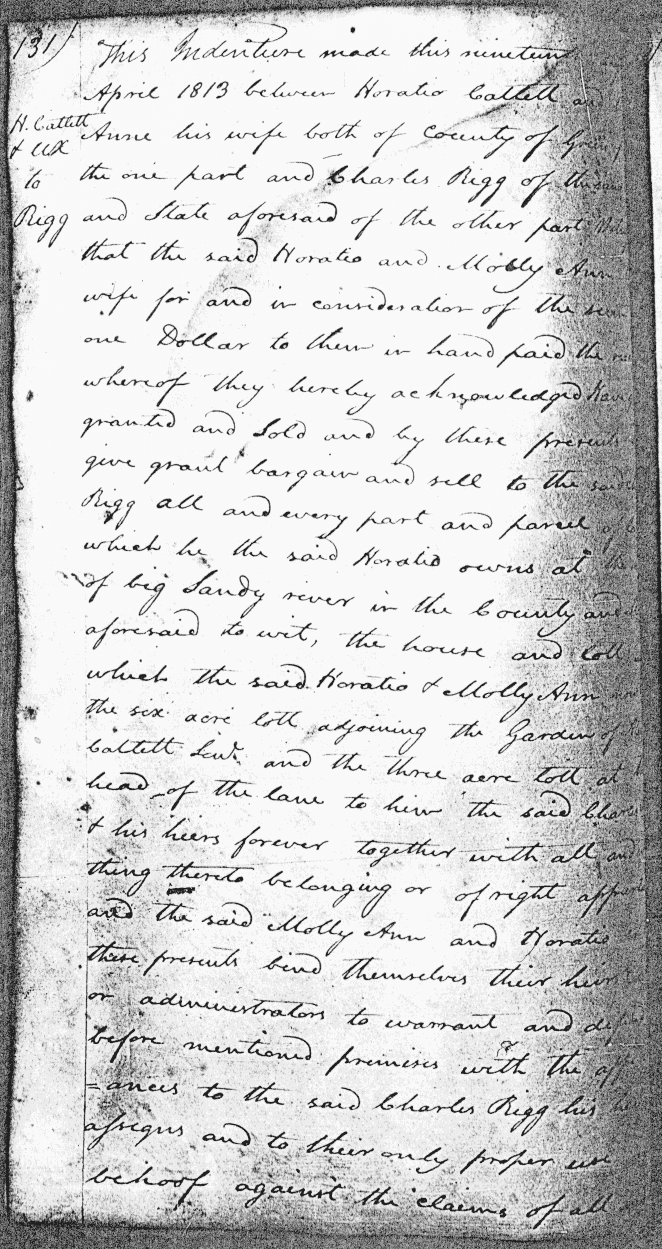 131)
H. Catlett
& Ux
to
Rigg
This Indenture made this nineteen
April 1813 between Horatio Catlett and
Anne his wife both of County of Green
the one part and Charles Rigg of the
and State aforesaid of the other part
that the said Horatio and Molly Ann
wife for and in consideration of the sum
one Dollar to them in hand paid the
whereof they hereby acknowledged
granted and Sold and by these presents
give grant bargain and sell to the said
Rigg all and every part and parcel of
which he the said Horatio owns at
of big Sandy river in the County and
aforesaid to wit, the house and lott
which the said Horatio & Molly Ann
the six acre lott adjoining the Garden of
Catlett Senr. and the three acre lott at
head of the lane to him the said Charles
& his heirs forever together with all
thing thereto belonging or of right
and the said Molly Ann and Horatio
these presents bind themselves their heirs
or administrators to warrant and
before mentioned premises with the
=ances to the said Charles Rigg his
assigns and to their only proper use
behoof against the claims of all